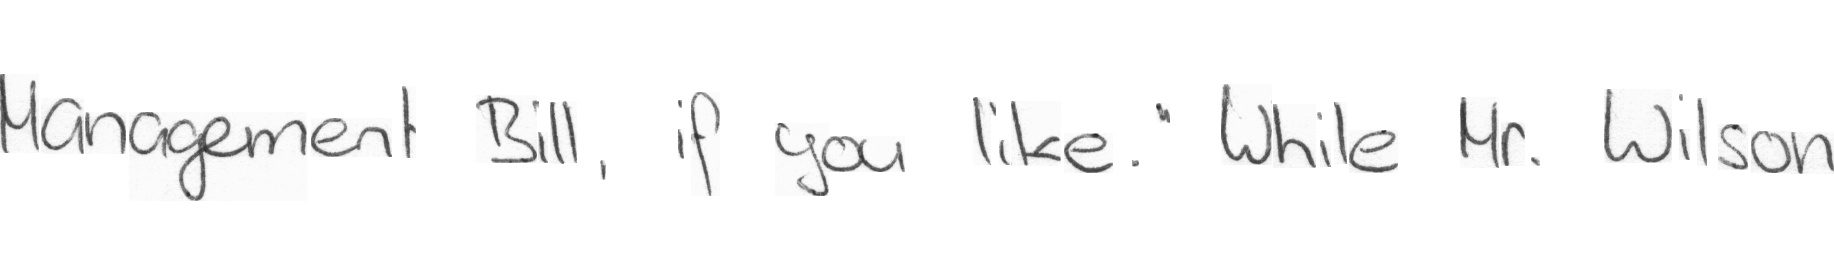 Management Bill, if you like." While Mr. Wilson